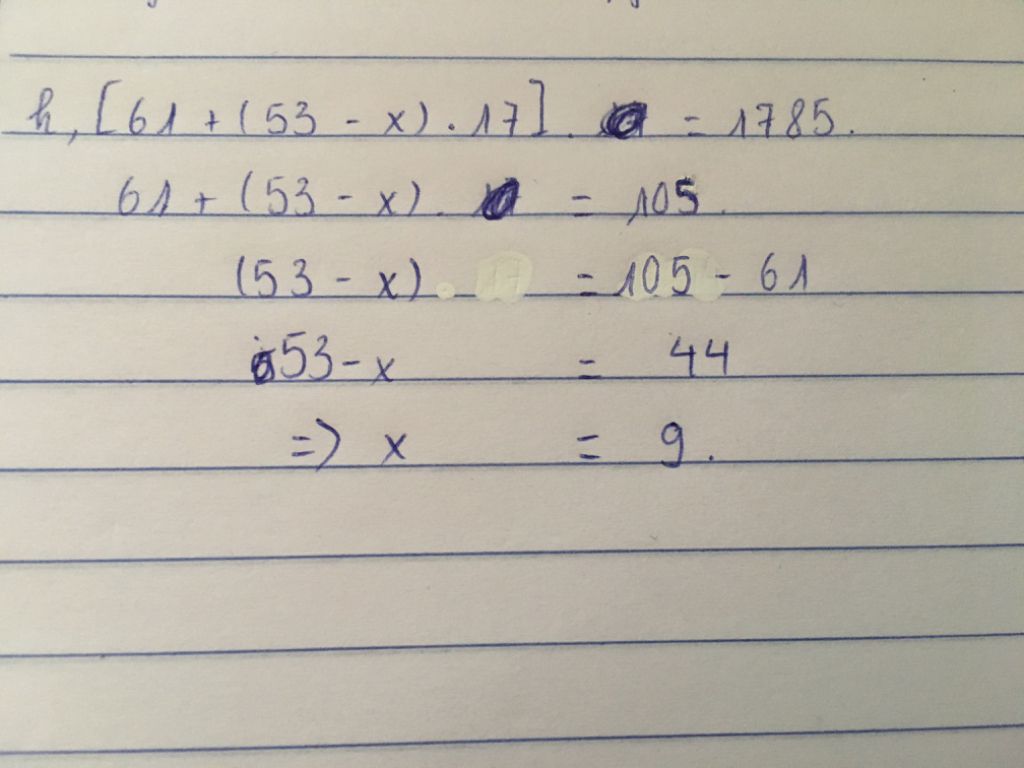 h, [61 + (53 - x) . 17] . = 1785.
61 + (53 - x) . = 105.
(53 - x) . 17 = 105 - 61
53 - x = 44
=> x = 9.